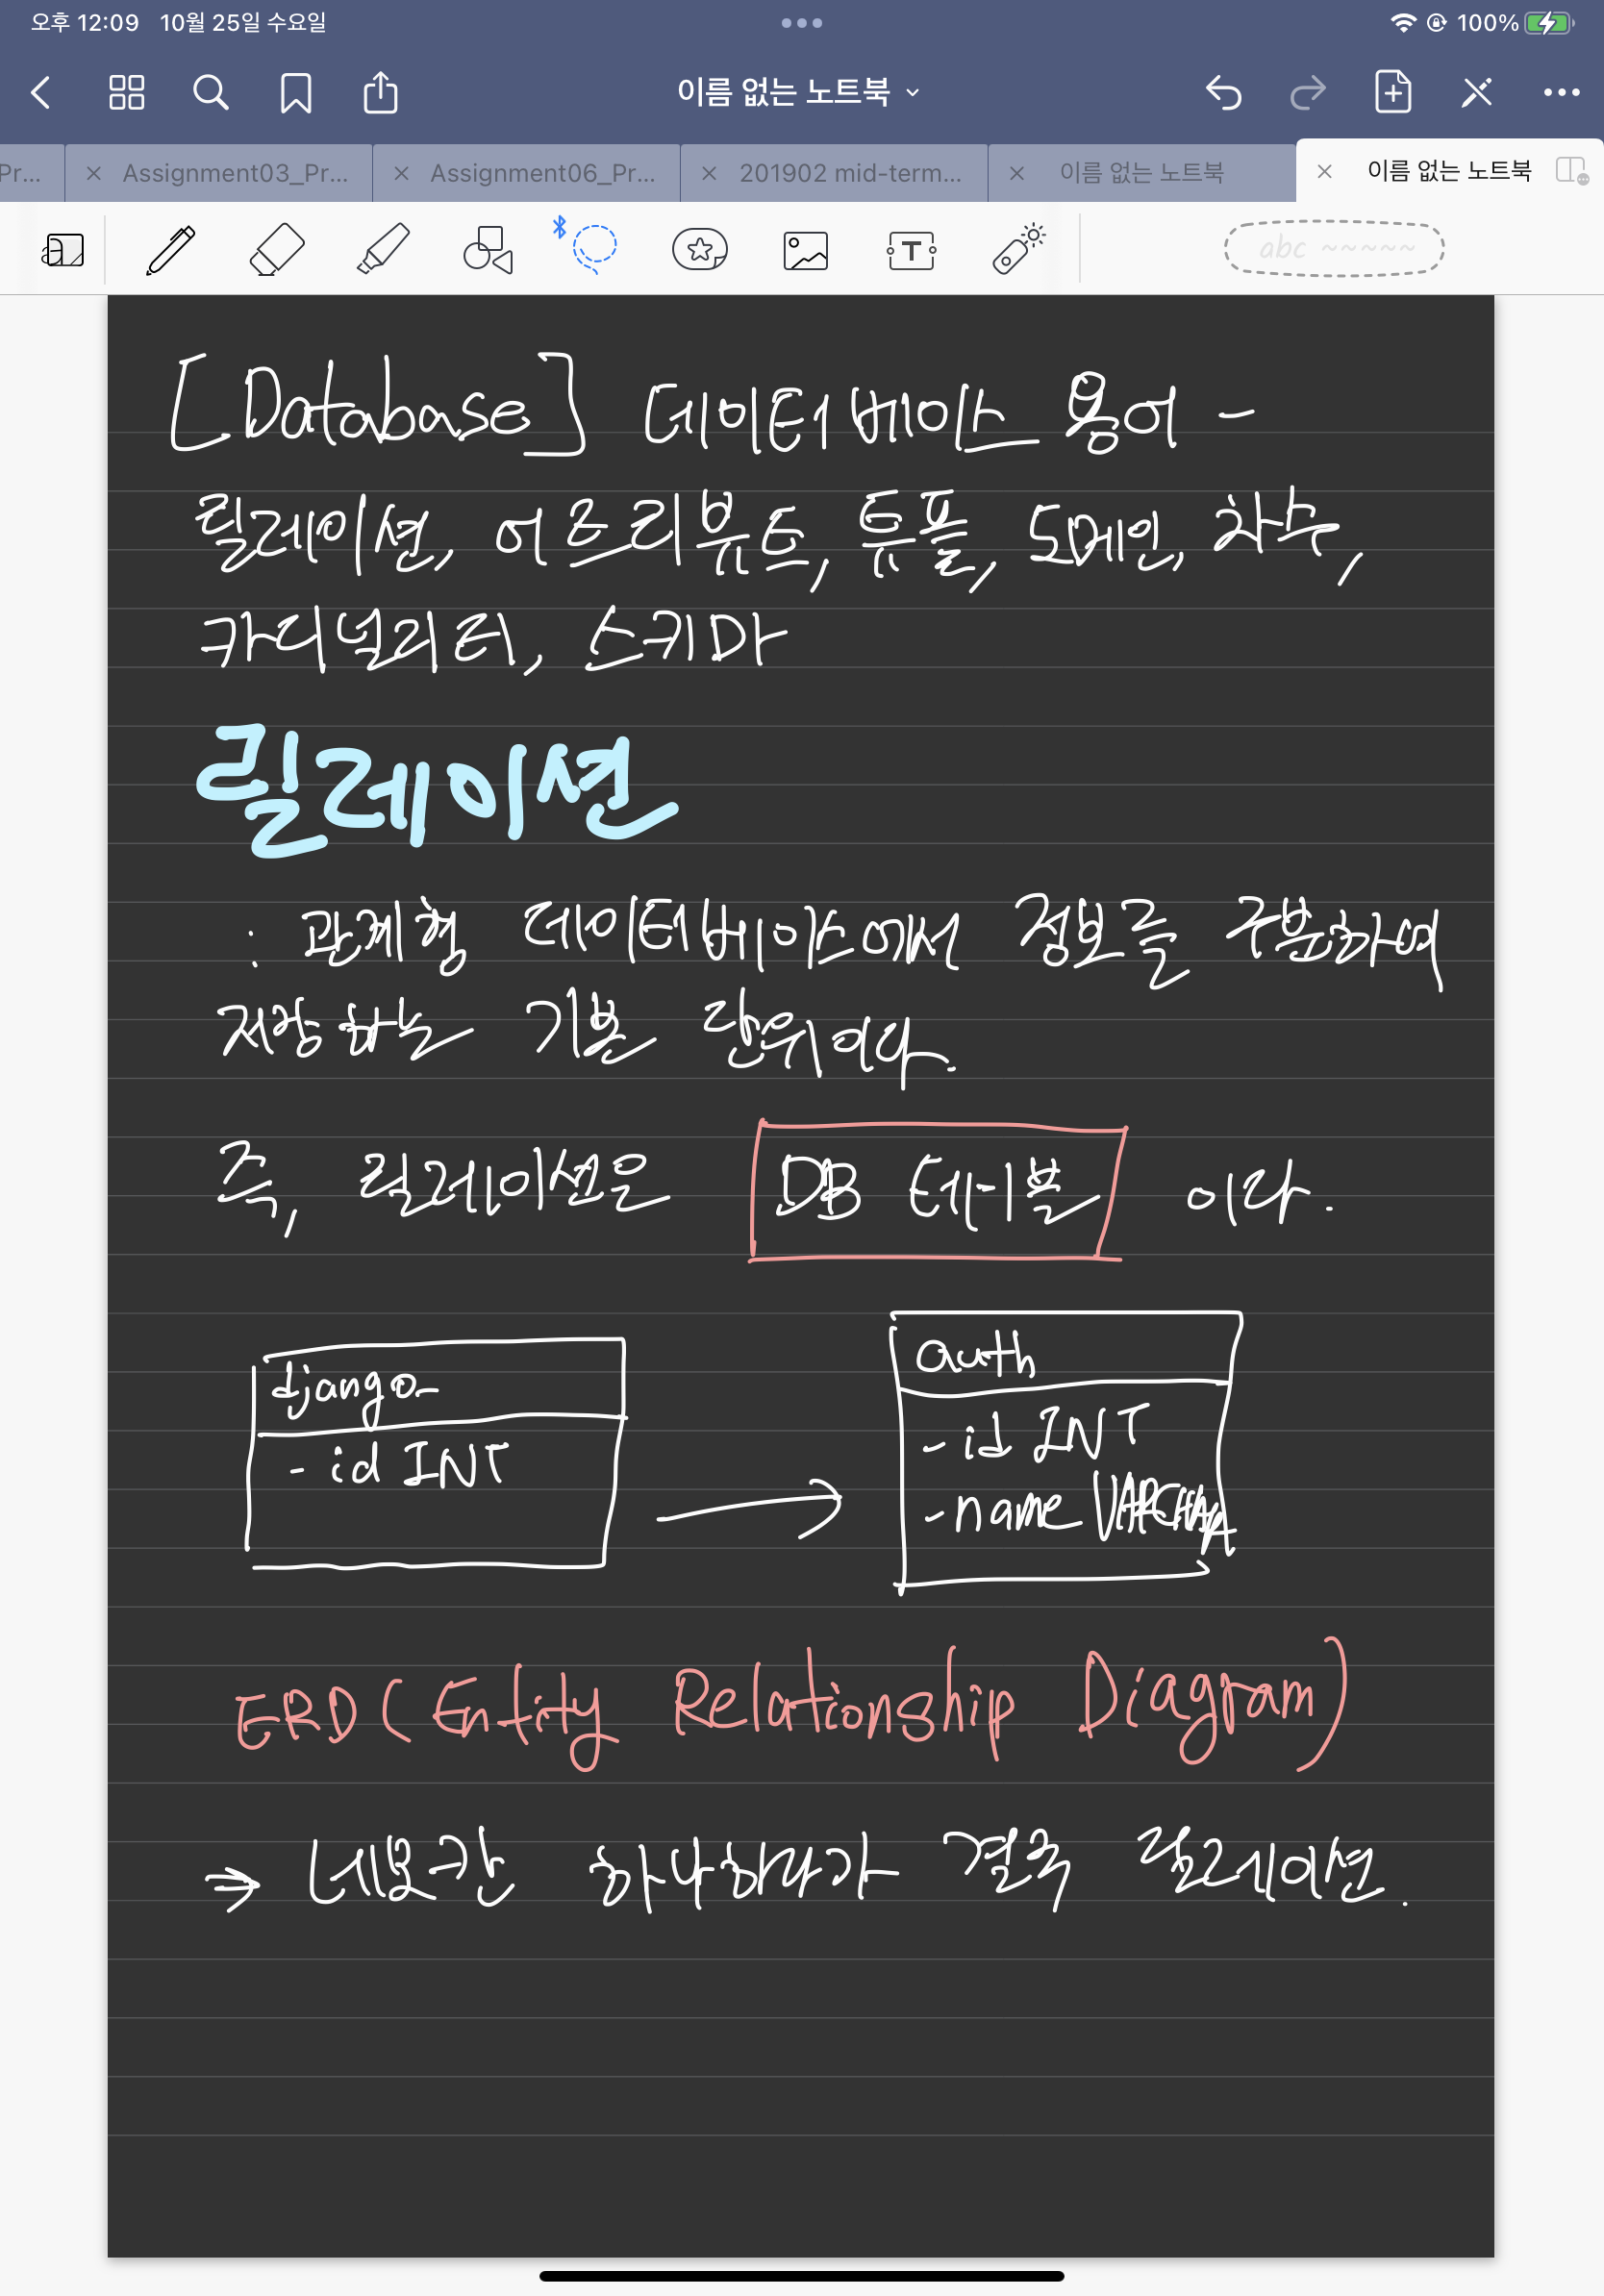 오후 12:09 10월 25일 수요일 100%
이름 없는 노트북
Pr... Assignment03_Pr... Assignment06_Pr... 201902 mid-term... 이름 없는 노트북 이름 없는 노트북
T abc ~~~~~
[Database] 데이터베이스 용어 -
릴레이션, 어트리뷰트, 튜플, 도메인, 차수,
카디널리티, 스키마
릴레이션
: 관계형 데이터베이스에서 정보를 구분하여
저장하는 기본 단위이다.
즉, 릴레이션은 DB 테이블 이다.
django_
- id INT
auth
- id INT
- name VARCHAR
ERD (Entity Relationship Diagram)
⇒ 네모칸 하나하나가 결국 릴레이션.